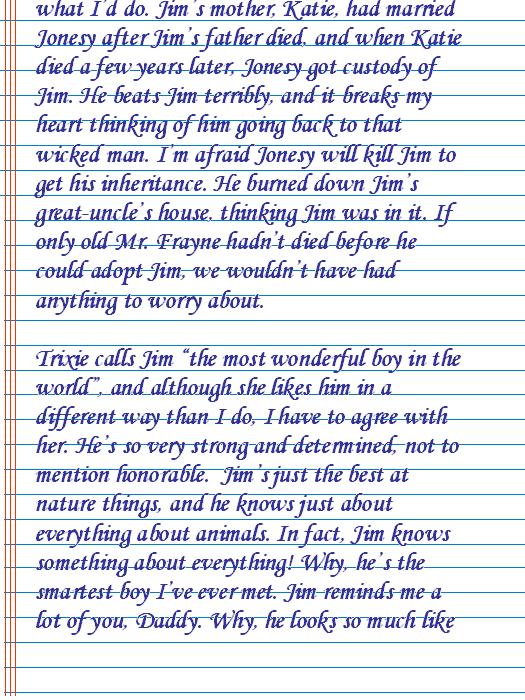 what I'd do. Jim's mother, Katie, had married
Jonesy after Jim's father died. and when Katie
died a few years later, Jonesy got custody of
Jim. He beats Jim terribly, and it breaks my
heart thinking of him going back to that
wicked man. I'm afraid Jonesy will kill Jim to
get his inheritance. He burned down Jim's
great-uncle's house. thinking Jim was in it. If
only old Mr. Frayne hadn't died before he
could adopt Jim, we wouldn't have had
anything to worry about.
Trixie calls Jim “the most wonderful boy in the
world”, and although she likes him in a
different way than I do, I have to agree with
her. He's so very strong and determined, not to
mention honorable. Jim's just the best at
nature things, and he knows just about
everything about animals. In fact, Jim knows
something about everything! Why, he's the
smartest boy I've ever met. Jim reminds me a
lot of you, Daddy. Why, he looks so much like